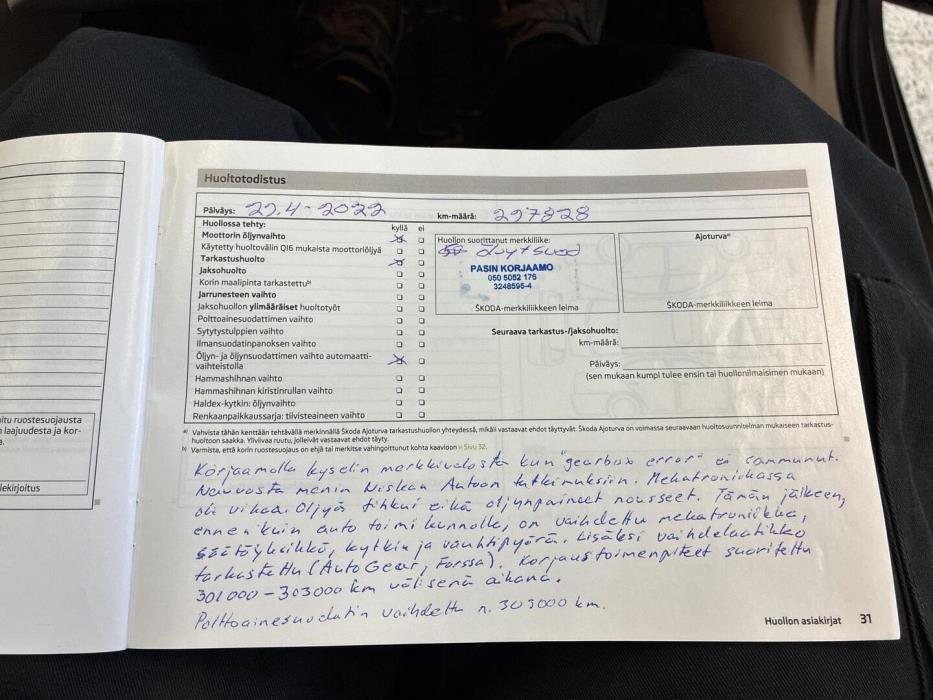 Huoltotodistus
Päiväys: 22.4-2022
km-määrä: 297828
Huollossa tehty:
kyllä ei
Moottorin öljynvaihto
Käytetty huoltovälin QI6 mukaista moottoriöljyä
Tarkastushuolto
Jaksohuolto
Korin maalipinta tarkastettu b)
Jarrunesteen vaihto
Jaksohuollon ylimääräiset huoltotyöt
Polttoainesuodattimen vaihto
Sytytystulppien vaihto
Ilmansuodatinpanoksen vaihto
Öljyn- ja öljynsuodattimen vaihto automaatti-
vaihteistolla
Hammashihnan vaihto
Hammashihnan kiristinrullan vaihto
Haldex-kytkin: öljynvaihto
Renkaanpaikkaussarja: tiivisteaineen vaihto
Huollon suorittanut merkkiliike:
öljyt+suod
PASIN KORJAAMO
050 5052 176
3248595-4
ŠKODA-merkkiliikkeen leima
Ajoturva a)
ŠKODA-merkkiliikkeen leima
Seuraava tarkastus-/jaksohuolto:
km-määrä:
Päiväys:
(sen mukaan kumpi tulee ensin tai huollonilmaisimen mukaan)
a) Vahvista tähän kenttään tehtävällä merkinnällä Škoda Ajoturva tarkastushuollon yhteydessä, mikäli vastaavat ehdot täyttyvät. Škoda Ajoturva on voimassa seuraavaan huoltosuunnitelman mukaiseen tarkastus-
huoltoon saakka. Yliviivaa ruutu, jolleivät vastaavat ehdot täyty.
b) Varmista, että korin ruostesuojaus on ehjä tai merkitse vahingoittunut kohta kaavioon » Sivu 32.
Korjaamolla kyselin merkkivalosta kun "gearbox error" ei sammunut.
Neuvosta menin Niskan Autoon tutkimuksiin. Mekatroniikassa
oli vikaa. Öljyä tihkui eikä öljynpaineet nousseet. Tämän jälkeen,
ennen kuin auto toimi kunnolla, on vaihdettu mekatroniikka,
säätöyksikkö, kytkin ja vauhtipyörä. Lisäksi vaihdelaatikko
tarkastettu (AutoGear, Forssa). Korjaustoimenpiteet suoritettu
301000-303000 km välisenä aikana.
Polttoainesuodatin vaihdettu n. 303000 km.
Huollon asiakirjat 31
ruostesuojausta
laajuudesta ja kor-
lekirjoitus